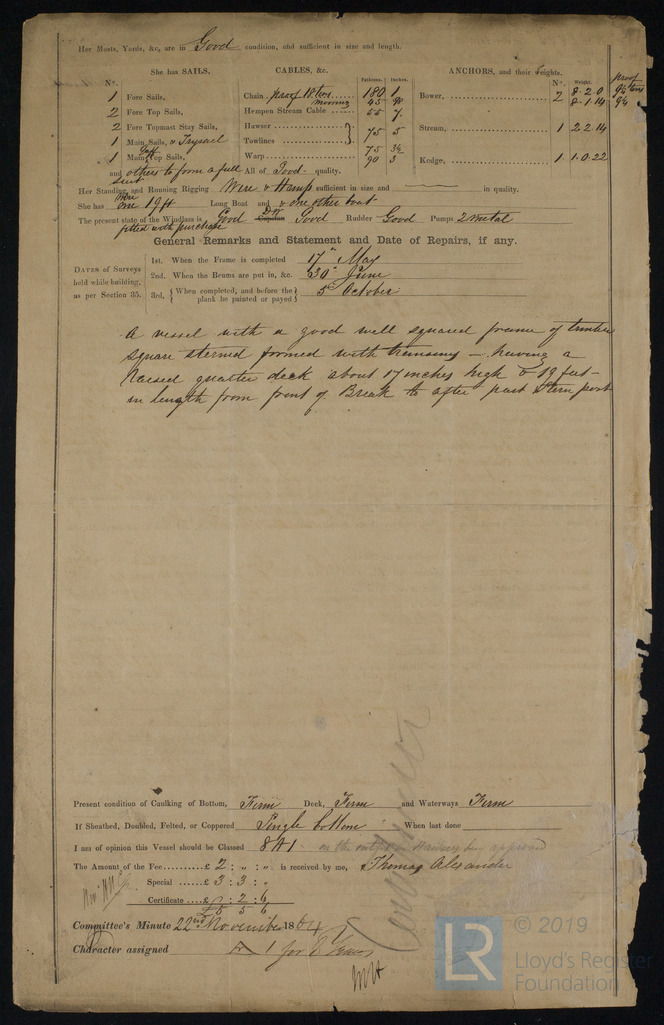 Her Masts, Yards, &c, are in Good condition, and sufficient in size and length.
She has SAILS. CABLES, &c. Fathoms. Inches. ANCHORS, and their Weights.
No. No. Weight. proof
1 Fore Sails, Chain proof 18 tons 180 1 Bower, 2 8-2-0 9¾ tons
mooring 45 8-1-14
2 Fore Top Sails, Hempen Stream Cable 55 7
2 Fore Topmast Stay Sails, Hawser 75 5 Stream, 1 2 2 14
1 Main Sails, & Trysail Towlines 75 3½
1 Main Gaff Top Sails, Warp 90 3 Kedge, 1 1.0.22
and others to form a full suit All of Good quality.
Her Standing and Running Rigging Wire & Hemp sufficient in size and in quality.
She has one 19 ft Long Boat and & one other boat
The present state of the Windlass is Good Capstan Good Rudder Good Pumps 2 metal
fitted with purchase
General Remarks and Statement and Date of Repairs, if any.
DATES of Surveys held while building, as per Section 35.
1st. When the Frame is completed 17th May
2nd. When the Beams are put in, &c. 30" June
3rd, { When completed, and before the plank be painted or payed } 5th October
A vessel with a good well squared frame of timber
square sterned formed with transoms - having a
Raised quarter deck about 17 inches high & 19 feet
in length from front of Break to after part Stern post
Present condition of Caulking of Bottom, Firm Deck, Firm and Waterways Firm
If Sheathed, Doubled, Felted, or Coppered Single bottom When last done
I am of opinion this Vessel should be Classed 8 A 1 on the
The Amount of the Fee £ 2 : " : " is received by me, Thomas Alexander
Special £ 3 : 3 : "
Certificate £ " : 2 : 6
£ 5 5 6
Committee's Minute 22nd November 1864
Character assigned A 1 for 8 Years
© 2019
LR
Lloyd's Register
Foundation